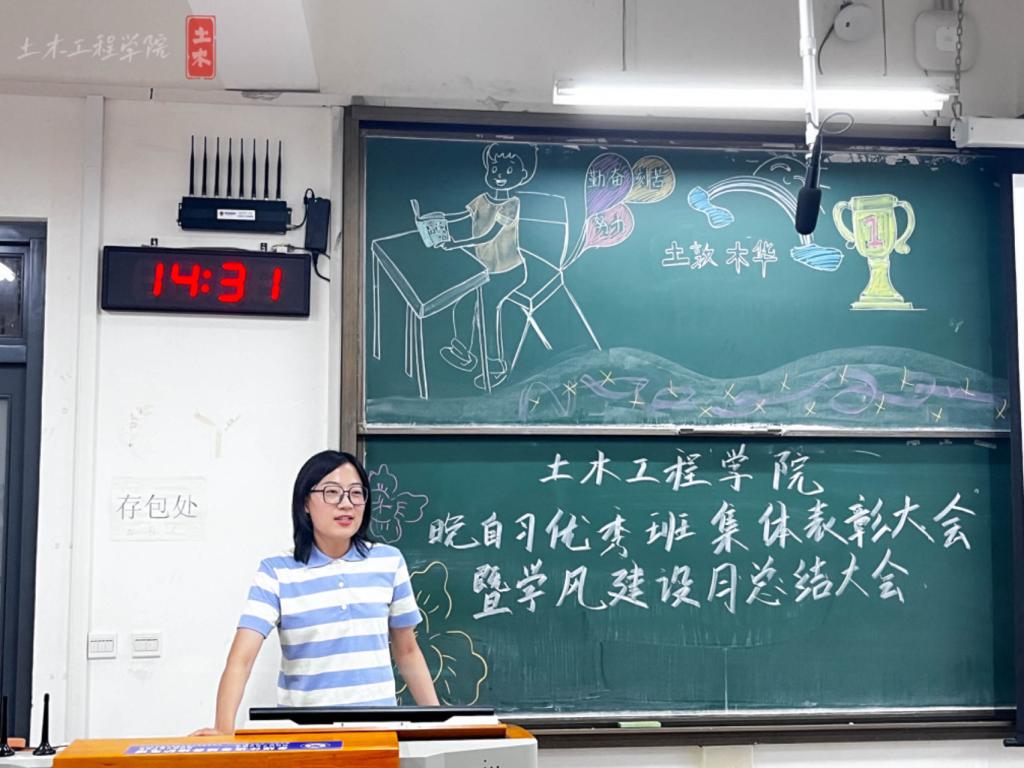 土木工程学院
土木
14:31
勤奋
刻苦
努力
土敦木华
1
存包处
土木工程学院
晚自习优秀班集体表彰大会
暨学风建设月总结大会